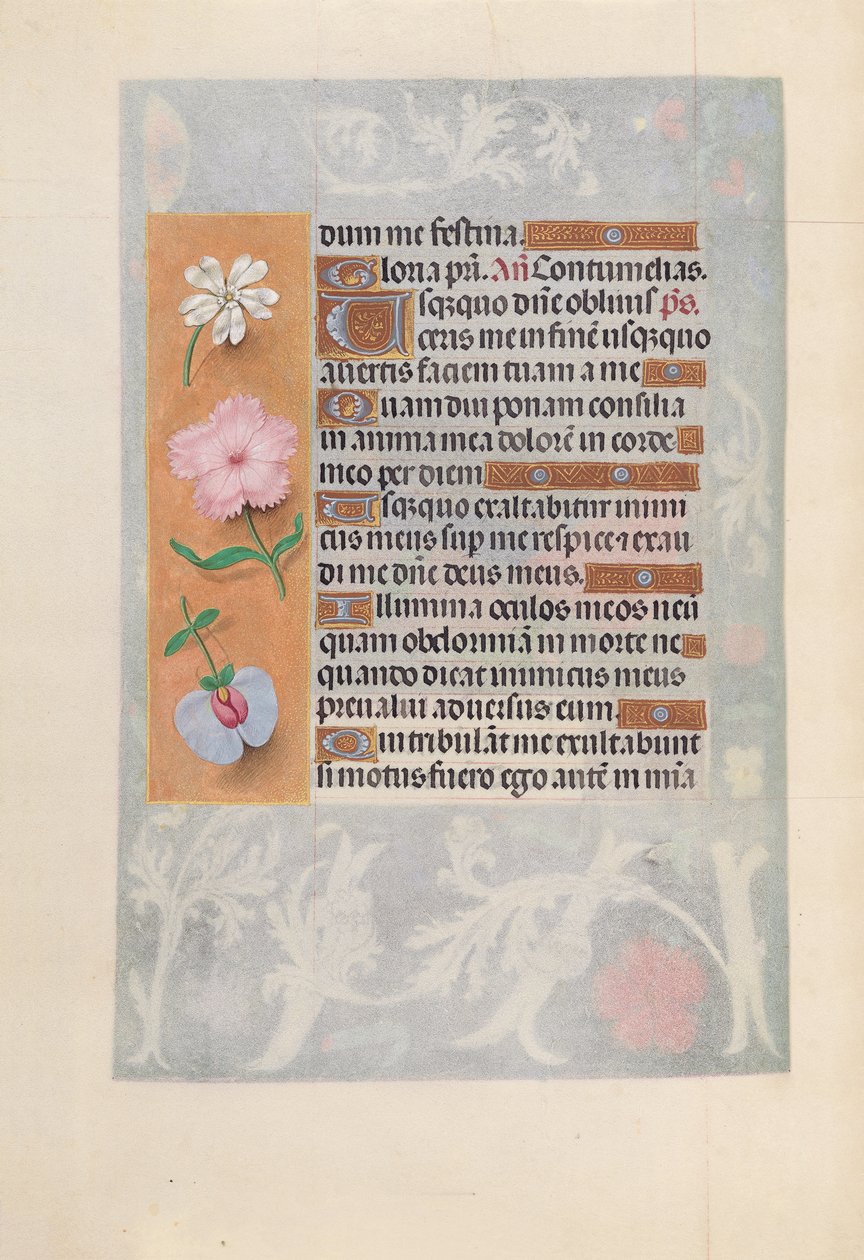 dum me festina.
Gloria pr̄i. An̄ Contumelias.
Usqꝫquo dn̄e obliuis p̄s.
ceris me in finē usqꝫquo
auertis faciem tuam a me
Quamdiu ponam consilia
in anima mea dolorē in corde
meo per diem
Usqꝫquo exaltabitur inimi
cus meus sup̱ me respice ⁊ exau
di me dn̄e deus meus.
Illumina oculos meos neū
quam obdormiā in morte ne
quando dicat inimicus meus
preualui aduersus eum.
Qui tribulāt me exultabunt
si motus fuero ego autē in mīa